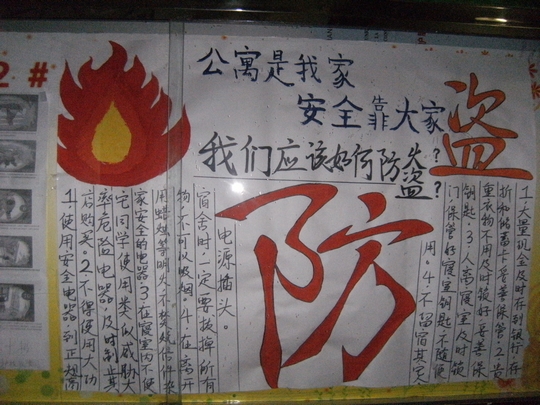 2#
公寓是我家
安全靠大家
我们应该如何防火?盗?
防
盗
1.使用安全电器,到正规商
店购买.2.不得使用大功
率危险电器,及时制止其
它同学使用类似威胁大
家安全的电器.3.在寝室内不使
用蜡烛等明火不焚烧信件杂
物,不可以吸烟.4.在离开
宿舍时,一定要拔掉所有
电源插头。
1.大量现金及时存到银行,存
折和储蓄卡妥善保管2.贵
重衣物不用及时锁好,妥善保
钥匙.3.人离寝室及时锁
门保管好寝室钥匙不随便
用.4.不留宿其它